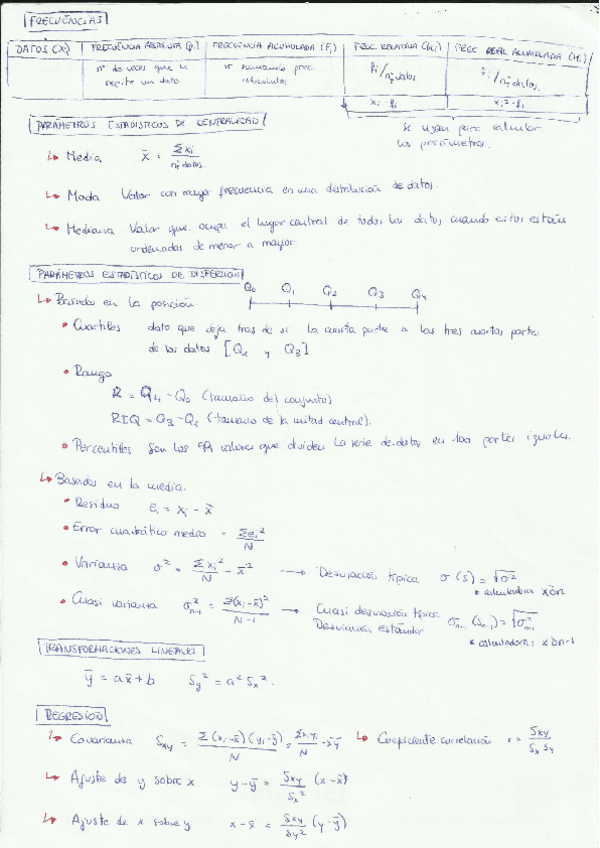 FRECUENCIAS
DATOS (Xi) FRECUENCIA ABSOLUTA (fi) FRECUENCIA ACUMULADA (Fi) FREC RELATIVA (hi) FREC REAL ACUMULADA (Hi)
nº de veces que se repite un dato
fi/nº datos Fi/nº datos
xi·fi xi²·fi
se usan para calcular
los parámetros.
PARÁMETROS ESTADÍSTICOS DE CENTRALIDAD
Media x̄ = Σxi/nº datos
Moda Valor con mayor frecuencia en una distribución de datos.
Mediana Valor que ocupa el lugar central de todos los datos, cuando estos están
ordenados de menor a mayor.
PARÁMETROS ESTADÍSTICOS DE DISPERSIÓN
Q0 Q1 Q2 Q3 Q4
Basados en la posición
Cuartiles dato que deja tras de si la cuarta parte o las tres cuartas partes
de los datos [Q1 y Q3]
Rango
R = Q4 - Q0 (tamaño del conjunto)
RIQ = Q3 - Q1 (tamaño de la mitad central).
Percentiles Son los 99 valores que dividen la serie de datos en 100 partes iguales.
Basados en la media.
Residuo ei = xi - x̄
Error cuadrático medio = Σei²/N
Varianza σ² = Σxi²/N - x̄² → Desviación típica σ (s) = √σ²
* calculadora xσn
Cuasi varianza σ²n-1 = Σ(xi-x̄)²/N-1 → Cuasi desviación típica
Desviación estándar σn-1 (sn-1) = √σ²n-1
* calculadora: xσn-1
TRANSFORMACIONES LINEALES
ȳ = ax̄ + b Sy² = a² Sx².
REGRESION
Covarianza Sxy = Σ(xi-x̄)(yi-ȳ)/N = Σxiyi/N - x̄ȳ Coeficiente correlación r = Sxy/Sx Sy
Ajuste de y sobre x y-ȳ = Sxy/Sx² (x-x̄)
Ajuste de x sobre y x-x̄ = Sxy/Sy² (y-ȳ)